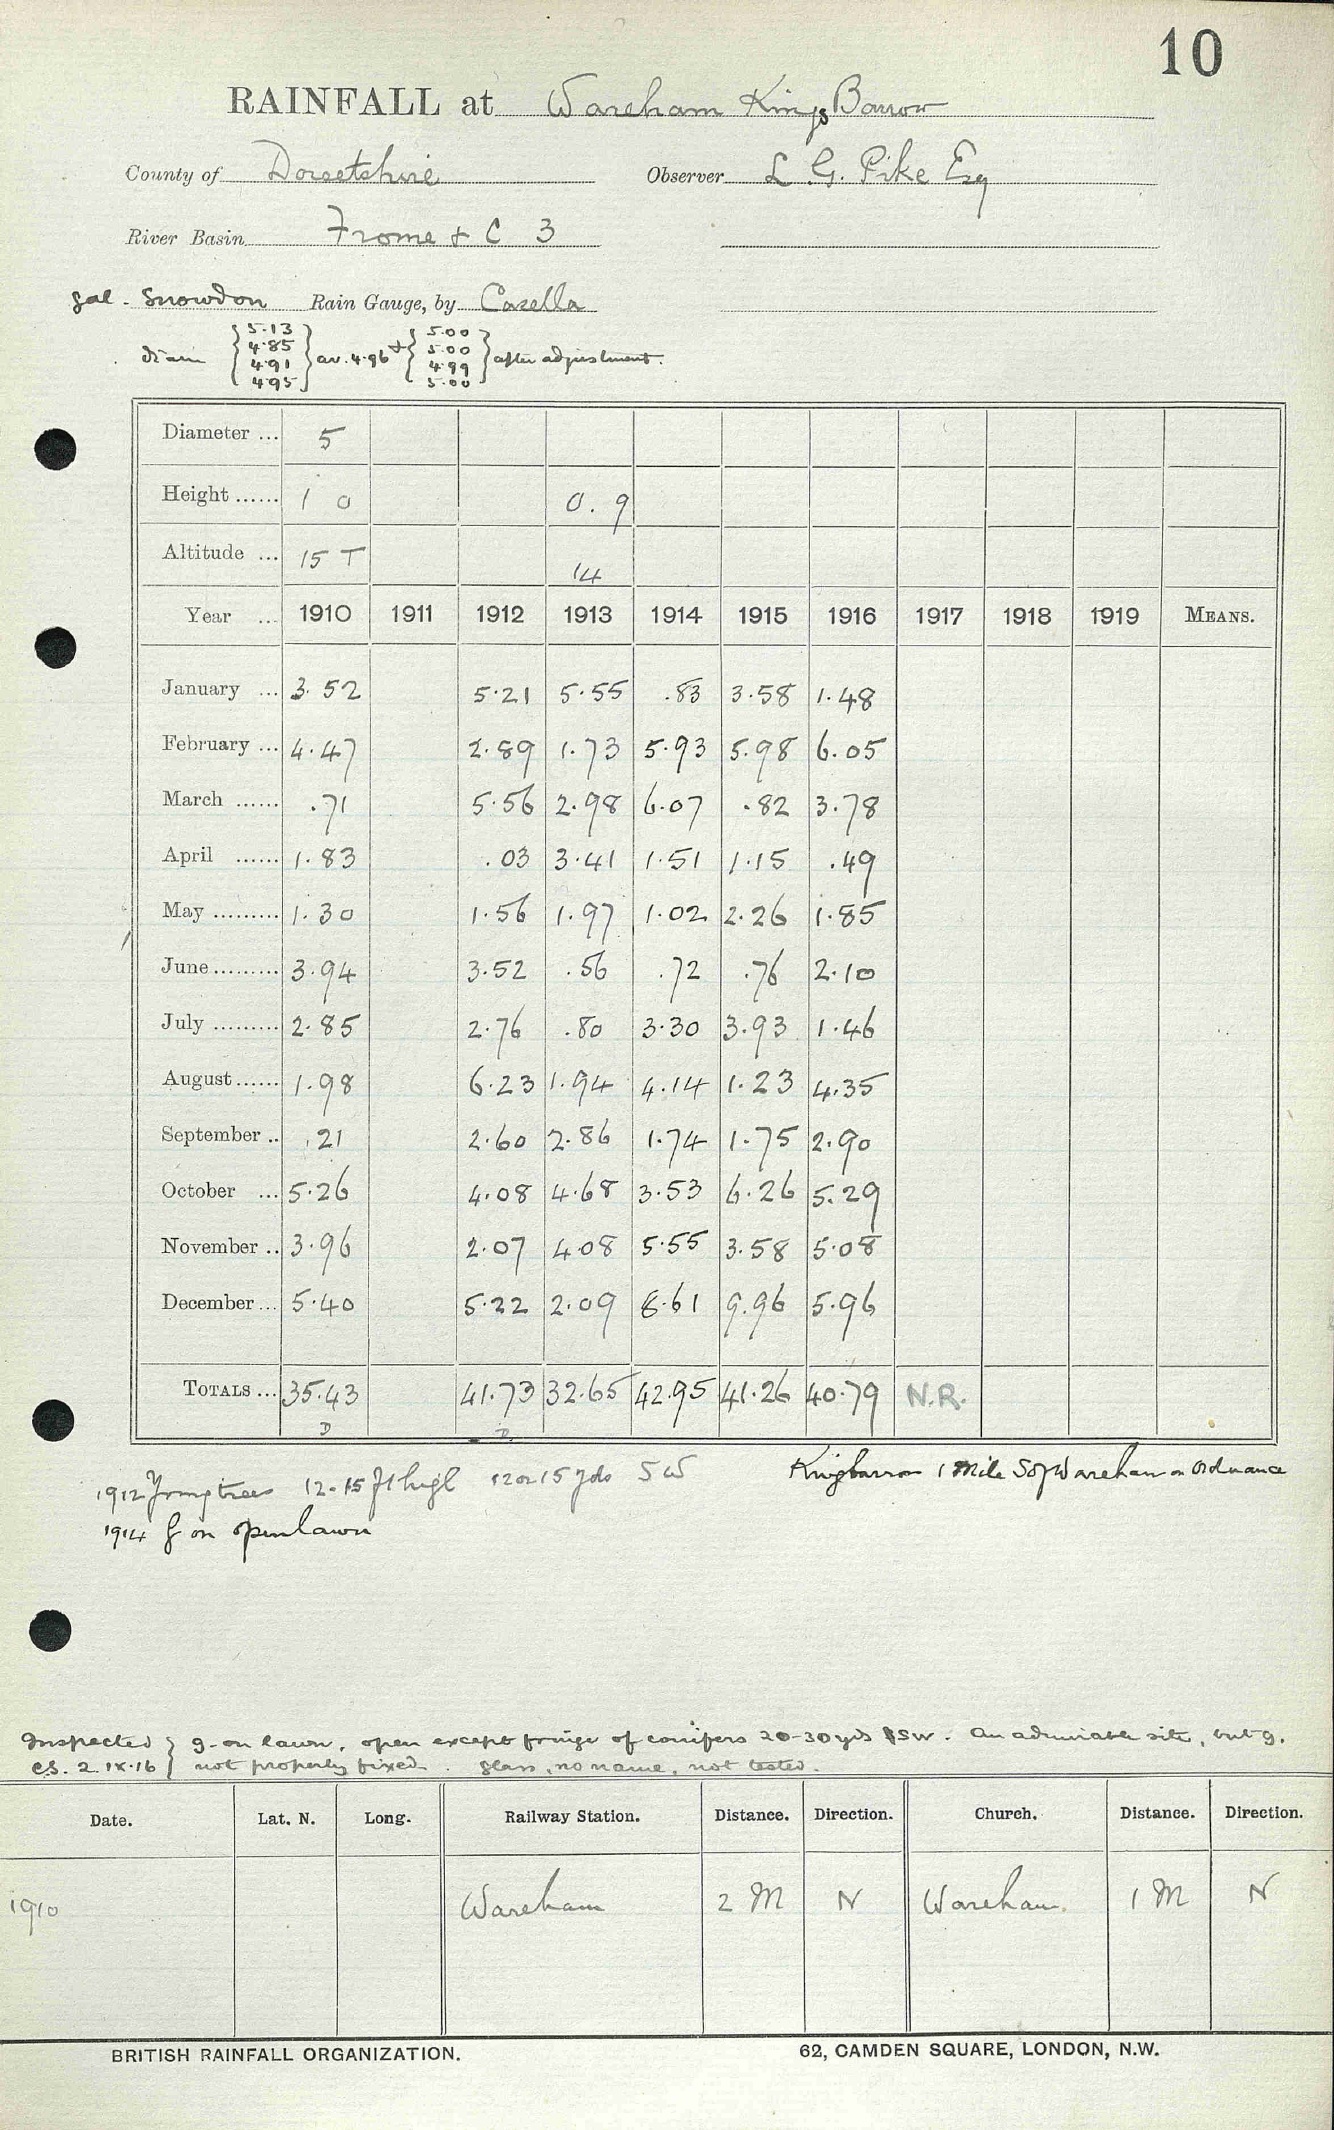 10
RAINFALL at Wareham Kings Barrow
County of Dorsetshire Observer L. G. Pike Esq
River Basin Frome & C 3
gal. Snowdon Rain Gauge, by Casella
diam { 5.13 4.85 4.91 4.95 } av. 4.96 & { 5.00 5.00 4.99 5.00 } after adjustment.
Diameter ... 5
Height ...... 1 0 0. 9
Altitude ... 15 T 14
Year ... 1910 1911 1912 1913 1914 1915 1916 1917 1918 1919 MEANS.
January ... 3.52 5.21 5.55 .83 3.58 1.48
February ... 4.47 2.89 1.73 5.93 5.98 6.05
March ...... .71 5.56 2.98 6.07 .82 3.78
April ...... 1.83 .03 3.41 1.51 1.15 .49
May ......... 1.30 1.56 1.97 1.02 2.26 1.85
June ......... 3.94 3.52 .56 .72 .76 2.10
July ......... 2.85 2.76 .80 3.30 3.93 1.46
August ...... 1.98 6.23 1.94 4.14 1.23 4.35
September .. .21 2.60 2.86 1.74 1.75 2.90
October ... 5.26 4.08 4.68 3.53 6.26 5.29
November .. 3.96 2.07 4.08 5.55 3.58 5.08
December ... 5.40 5.22 2.09 8.61 9.96 5.96
TOTALS ... 35.43 41.73 32.65 42.95 41.26 40.79 N.R.
D D
1912 Young trees 12-15 ft high 12 or 15 yds SW Kingbarrow 1 Mile S of Wareham on Ordnance
1914 g on open lawn
Inspected } g. on lawn, open except fringe of conifers 20-30 yds SSW. An admirable site, but g.
C.S. 2.IX.16 } not properly fixed. Glass, no name, not tested.
Date. Lat. N. Long. Railway Station. Distance. Direction. Church. Distance. Direction.
1910 Wareham 2 M N Wareham 1 M N
BRITISH RAINFALL ORGANIZATION. 62, CAMDEN SQUARE, LONDON, N.W.